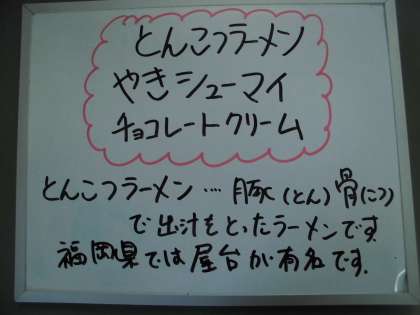 とんこつラーメン
やきシューマイ
チョコレートクリーム
とんこつラーメン…豚(とん)骨(こつ)
で出汁をとったラーメンです。
福岡県では屋台が有名です。